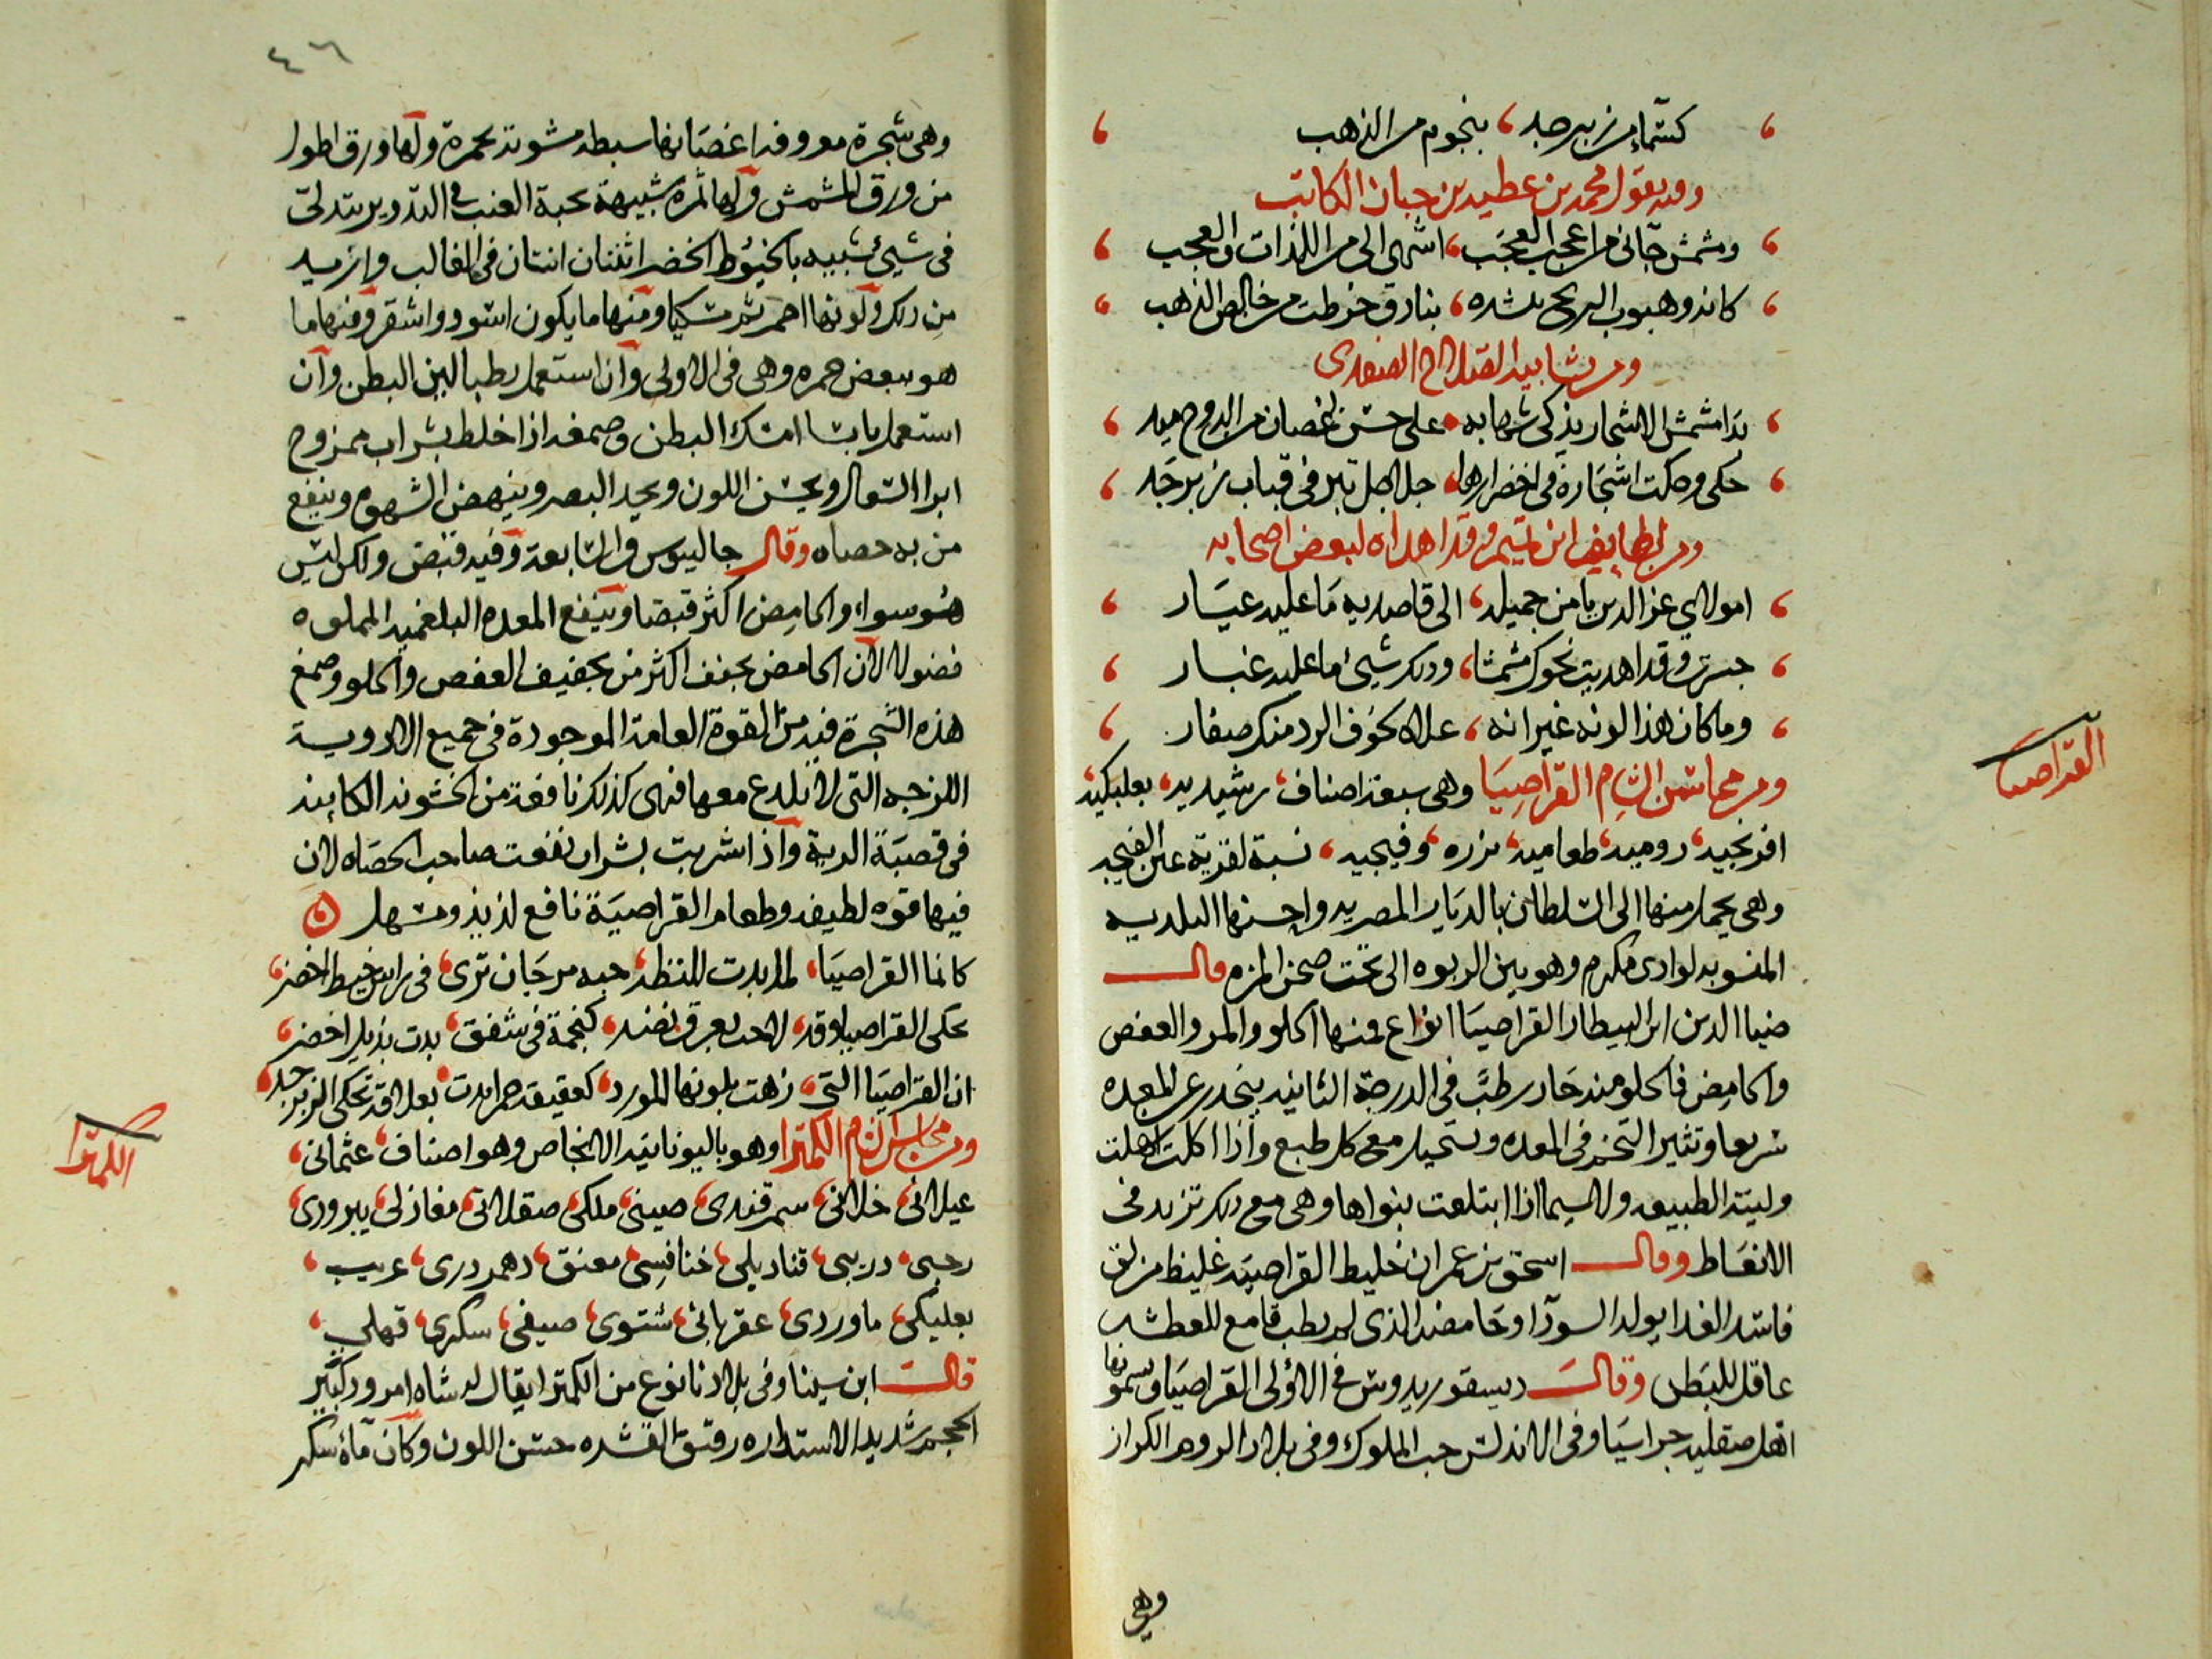 كسماء من زبرجد، بنجوم من الذهب
وفيه يقول محمد بن عطيه بن حبان الكاتب
ومشمش جآنى من اعجب العجب، اشهى الى من اللذات والعجب
كانه وهبوب الريح ينشره، بنادق خرطت من خالص الذهب
ومن تشابيه الصلاح الصفدى
بدا مشمش الاشجار يذكى شهابه، على حسن اغصان من الدوح ميد
حكى وحكت اشجاره فى اخضرارها، جلاجل تبر فى قباب زبرجد
ومن لطايف ابن تميم وقد اهداه لبعض اصحابه
امولاي عز الدين يا من جميله، الى قاصديه ما عليه عيار
جسرت وقد اهديت نحوك مشمشا، وذلك شيئ ما عليه غبار
وما كان هذا لونه غير انه، علاه لخوف الرد منك صفار
ومن محاسن الشام القراصِيَا وهى سبعة اصناف، رشيديه، بعلبكيه،
القراصيا
افرنجيه، روميه، طعاميه، نزره، وفيجيه، نسبة لقرية عين الفيجه
وهى يحمل منها الى السلطان بالديار المصريه واحسنها البلديه
المنسوبه لوادى مكرم وهو بين الربوه الى تحت صحن المزه قال
ضيا الدين ابن البيطار القراصيَا انواع فمنها الحلو والمر والعفص
والحامِض فالحلو منه حَار رطبٌ فى الدرجة الثانيه ينحدر عن المعده
سريعا وتثير التخم فى المعده وتستحيل مع كل طبع واذا اكلت اسهلت
ولينت الطبيعه ولا سيما اذا ابتلعت بنواها وهى مع ذلك تزيد فى
الانعَاظ وقال اسحق بن عمران خليط القراصيَه غليظ مزلق
فاسد الغدا يولد السودآ وحَامضه الذى لم يطب قامع للعطش
عاقل للبَطن وقال ديسقوريدوس فى الاولى القراصيَا ويسمونها
اهل صقليه جراسيَا وفى الاندلس حب الملوك وفى بلاد الروم الكراز
وهى
٤٦
وهى شجرة معروفه اغصَانها سبطه مشوبة بحمرة ولها ورق اطول
من ورق المشمش ولها ثمره شبيهة بحبة العنب فى التدوير يتدلى
فى شيئ شبيه بالخيُوط الخضر اثنتان اثنتان فى الغالب وازيد
من ذلك ولونها احمر ثم مسكيا ومنها ما يكون اسود واشقر ومنها ما
هو ببعض حمره وهى فى الاولى وان استعمل رطبا الين البطن وان
استعمل يابسا امسك البطن وصمغه اذا خلط بشراب ممزوج
ابرا السعال ويحسن اللون ويحد البصر وينهض الشهوة وينفع
من به حصاه وقال جالينوس فى السابعة وفيه قبض ولكن ليس
هُو سواء والحامِض اكثر قبضا وينفع المعده البلغميه المملوه
فضولا لان الحامض يجفف اكثر من تجفيف العفص والحلو وصمغ
هذه الشجرة فيه من القوة العامة الموجودة فى جميع الادوية
اللزجه التى لا تلدع معها فهى كذلك نافعة من الخشونه الكاينه
فى قصبَة الرية واذا شربت بشراب نفعت صاحب الحصَاه لان
فيها قوه لطيفه وطعام القراصيَة نافع لذيذ ومسهل
كانما القراصيَا، لما بدت للنظر، حبه مرجَان ترى، فى راس خيط اخضر،
تحكى القراصيا وقد، لاحت بعرق نضر، كنجمة فى شفق، بدت بذيل اخضر،
ان القراصيَا التى، زهت بلونها المورد، كعقيقه حمرا بدت، بعلاقة تحكى الزبرجد،
ومن محاسن الشام الكمثرا وهو باليونانيه الانجاص وهو اصناف، عثمانى،
الكمثرا
عيلانى، خلانى، سمرقندى، صينى، ملكى، صقلانى، مغازلى، يبرودى،
رحبى، دريبى، قناديلى، خنافسِى، معنق، دهدردرى، عريب،
بعلبكى، ماوردى، عقربانى، شتوى، صيفى، سكرى، قهلى،
قال ابن سينا وفى بلادنا نوع من الكمثرا يقال له شاه امرود كبير
الحجم شديد الاستداره رقيق القشره حسَن اللون وكان مآءه سكر